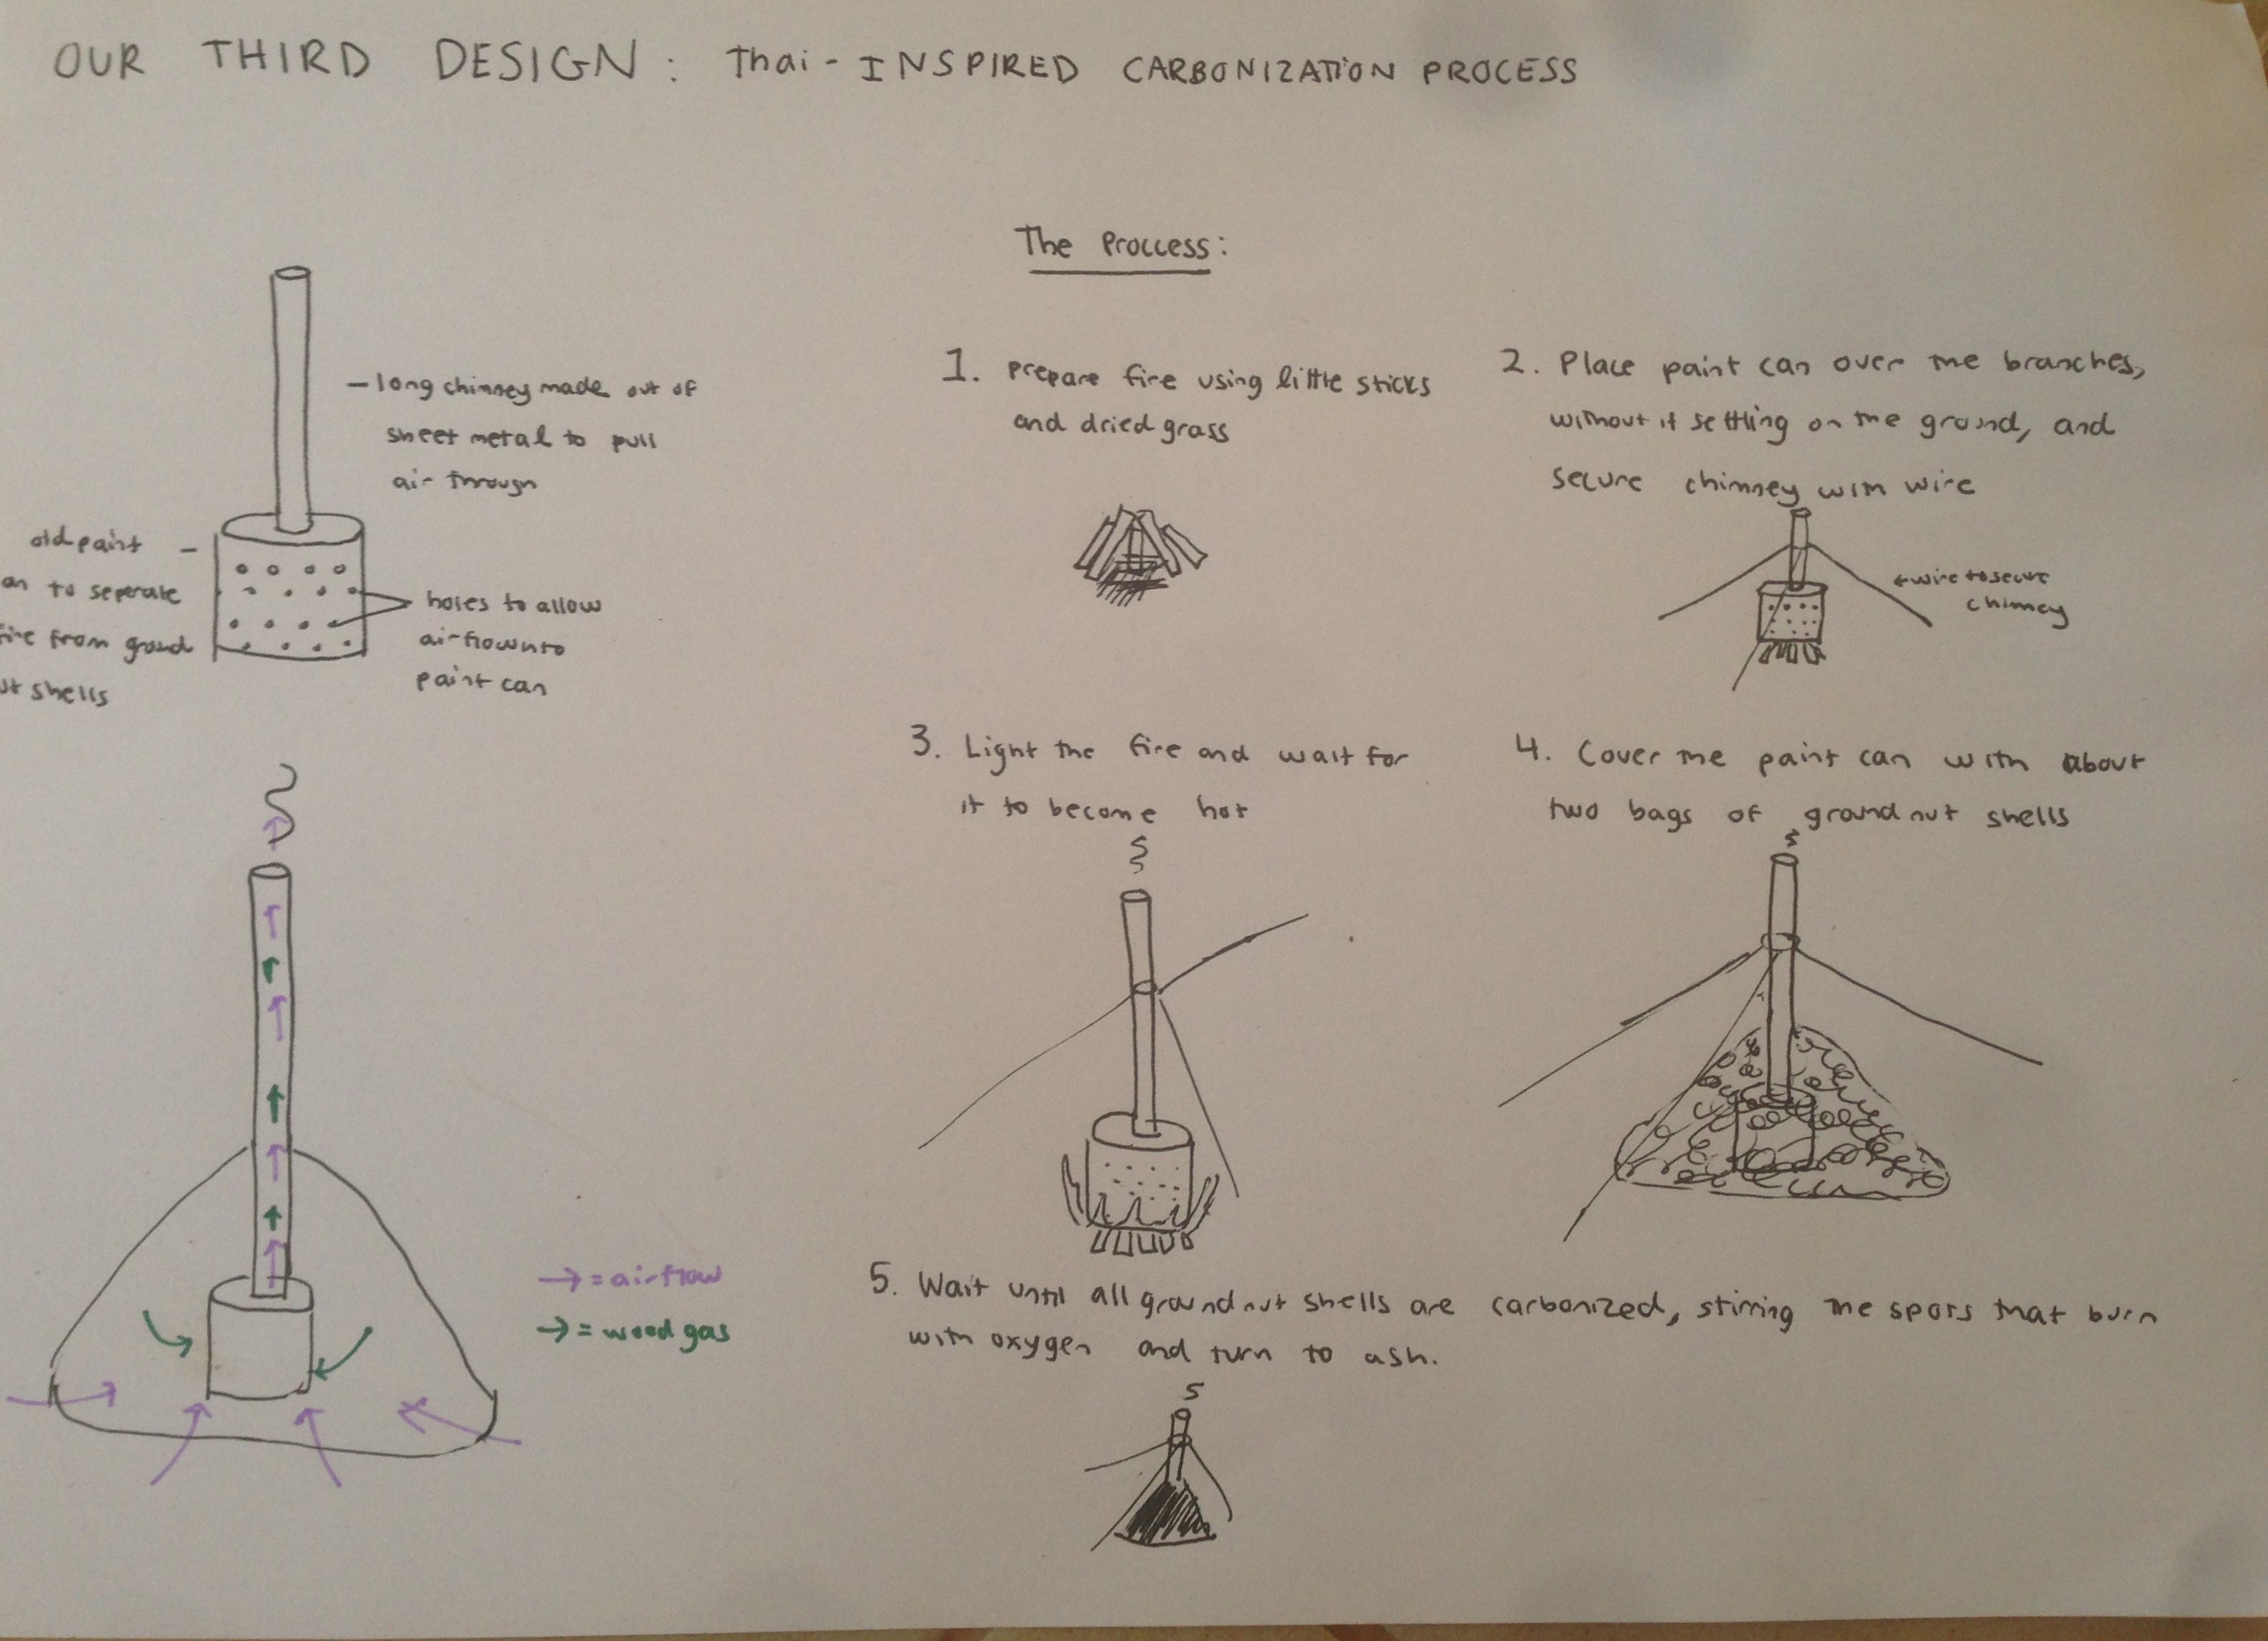 OUR THIRD DESIGN: Thai-INSPIRED CARBONIZATION PROCESS
- long chimney made out of
sheet metal to pull
air through
old paint -
an to seperate
fire from ground
ut shells
holes to allow
airflow into
paint can
→ = airflow
→ = wood gas
The Proccess:
1. prepare fire using little sticks
and dried grass
2. Place paint can over the branches,
without it settling on the ground, and
secure chimney with wire
← wire to secure
chimney
3. Light the fire and wait for
it to become hot
4. Cover the paint can with about
two bags of ground nut shells
5. Wait until all ground nut shells are carbonized, stirring the spots that burn
with oxygen and turn to ash.